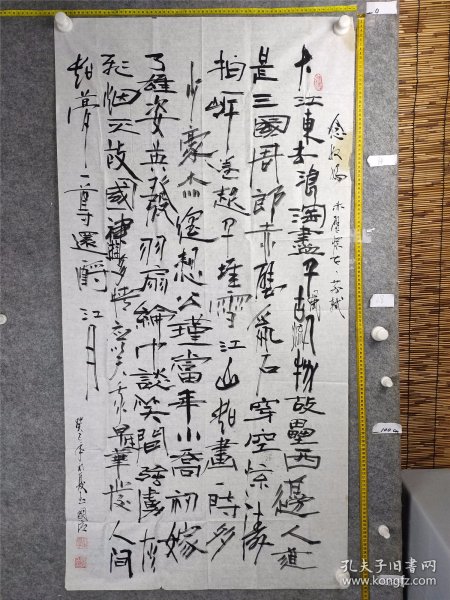 念奴嬌 赤壁懷古·苏轼
大江東去浪淘盡千古風流人物故壘西邊人道
是三國周郎赤壁亂石穿空惊涛
拍岸卷起千堆雪江山如畫一時多
少豪杰遥想公瑾當年小喬初嫁
了雄姿英發羽扇綸巾談笑間强虜灰
飛烟灭故國神游多情應笑我早生華发人间
如夢一尊還酹江月
孔夫子旧书网
kongfz.com